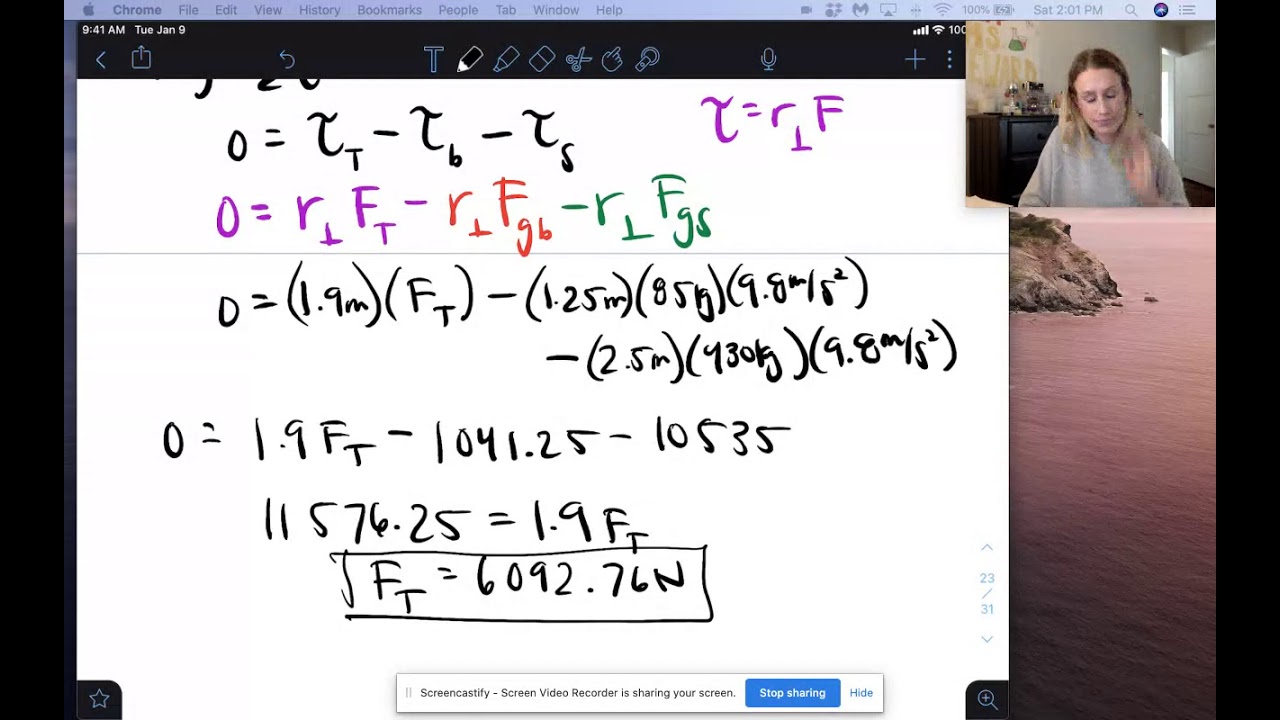 Chrome File Edit View History Bookmarks People Tab Window Help 100% Sat 2:01 PM
9:41 AM Tue Jan 9 100
T
0 = τT − τb − τs τ = r⊥F
0 = r⊥FT − r⊥Fgb − r⊥Fgs
0 = (1.9m)(FT) − (1.25m)(85kg)(9.8m/s²)
− (2.5m)(430kg)(9.8m/s²)
0 = 1.9FT − 1041.25 − 10535
11576.25 = 1.9FT
FT = 6092.76N
23
/
31
Screencastify - Screen Video Recorder is sharing your screen. Stop sharing Hide